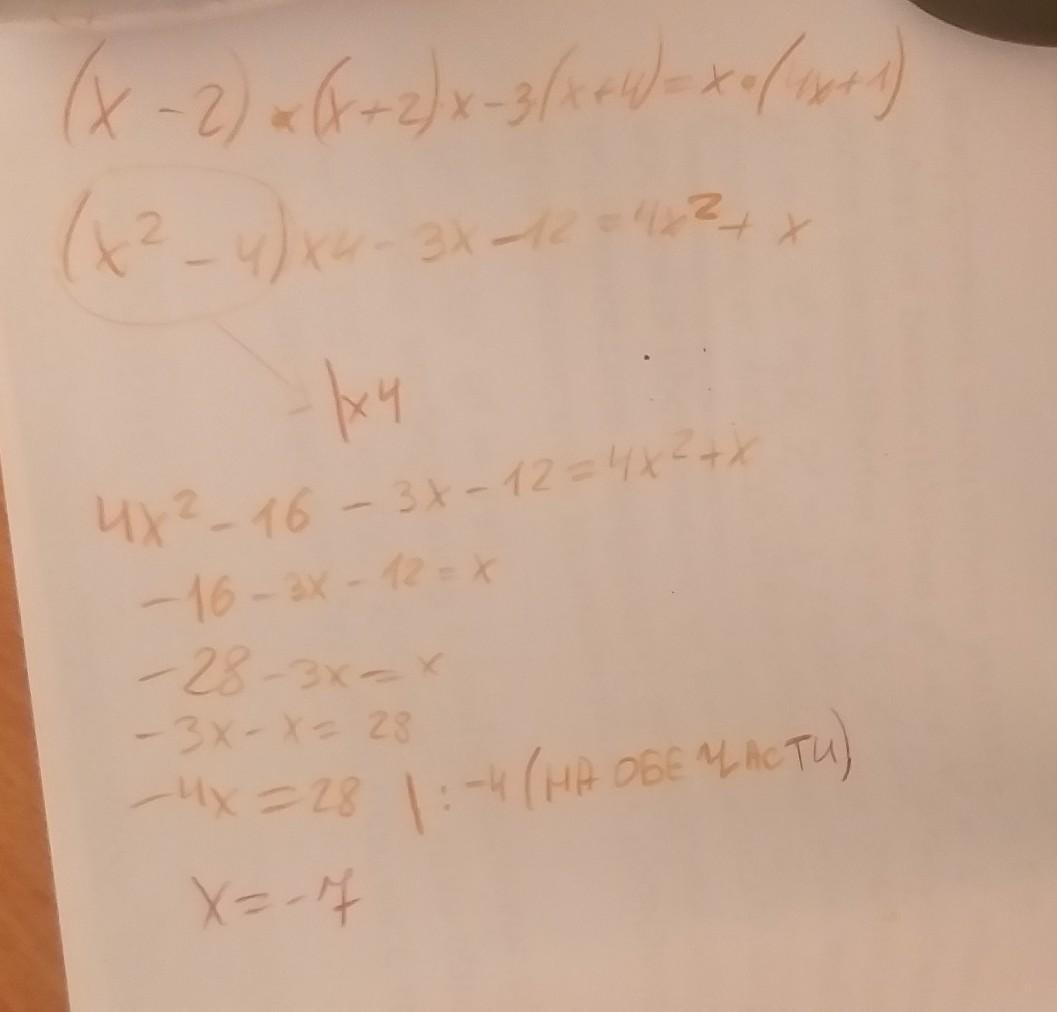 (x - 2) × (x + 2) x - 3(x + 4) = x • (4x + 1)
(x² - 4) x 4 - 3x - 12 = 4x² + x
|x4
4x² - 16 - 3x - 12 = 4x² + x
-16 - 3x - 12 = x
-28 - 3x = x
-3x - x = 28
-4x = 28 | : -4 (НА ОБЕ ЧАСТИ)
x = -7